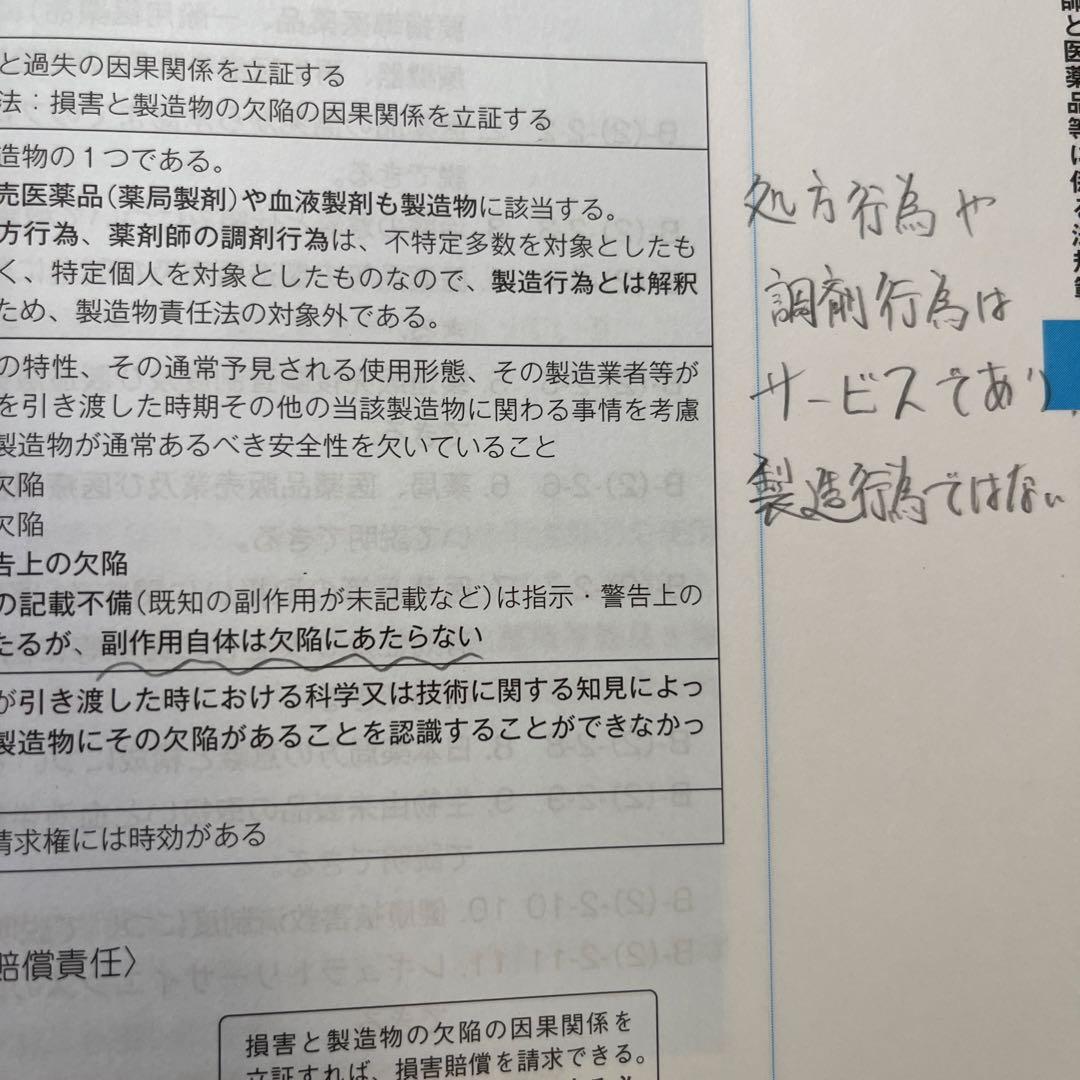 と過失の因果関係を立証する
法：損害と製造物の欠陥の因果関係を立証する
造物の1つである。
売医薬品（薬局製剤）や血液製剤も製造物に該当する。
方行為、薬剤師の調剤行為は、不特定多数を対象としたも
く、特定個人を対象としたものなので、製造行為とは解釈
ため、製造物責任法の対象外である。
の特性、その通常予見される使用形態、その製造業者等が
を引き渡した時期その他の当該製造物に関わる事情を考慮
製造物が通常あるべき安全性を欠いていること
欠陥
欠陥
告上の欠陥
の記載不備（既知の副作用が未記載など）は指示・警告上の
たるが、副作用自体は欠陥にあたらない
が引き渡した時における科学又は技術に関する知見によっ
製造物にその欠陥があることを認識することができなかっ
請求権には時効がある
賠償責任〉
損害と製造物の欠陥の因果関係を
立証すれば、損害賠償を請求できる。
処方行為や
調剤行為は
サービスであり、
製造行為ではない
師と医薬品等に係る法規範